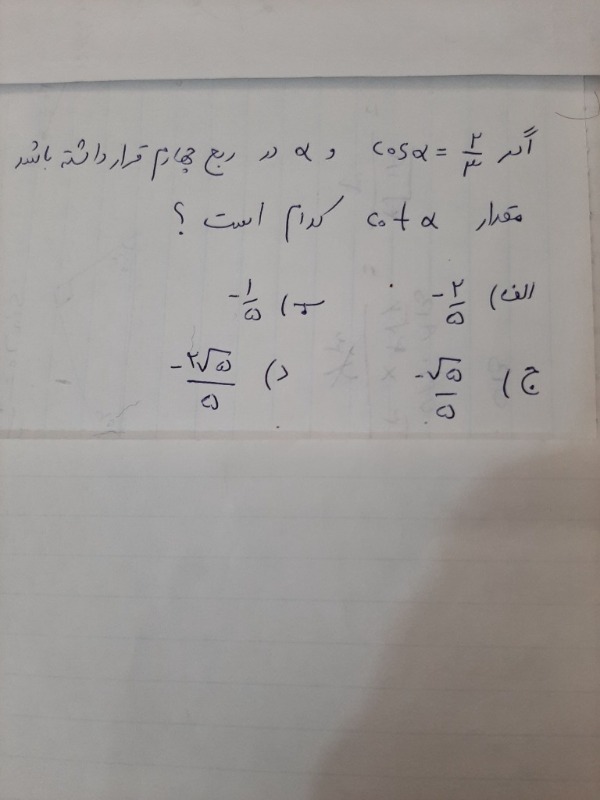 اگر cosα = ۲/۳ و α در ربع چهارم قرار داشته باشد
مقدار cot α کدام است ؟
الف) -۲/۵ ب) -۱/۵
ج) -√۵/۵ د) -۲√۵/۵